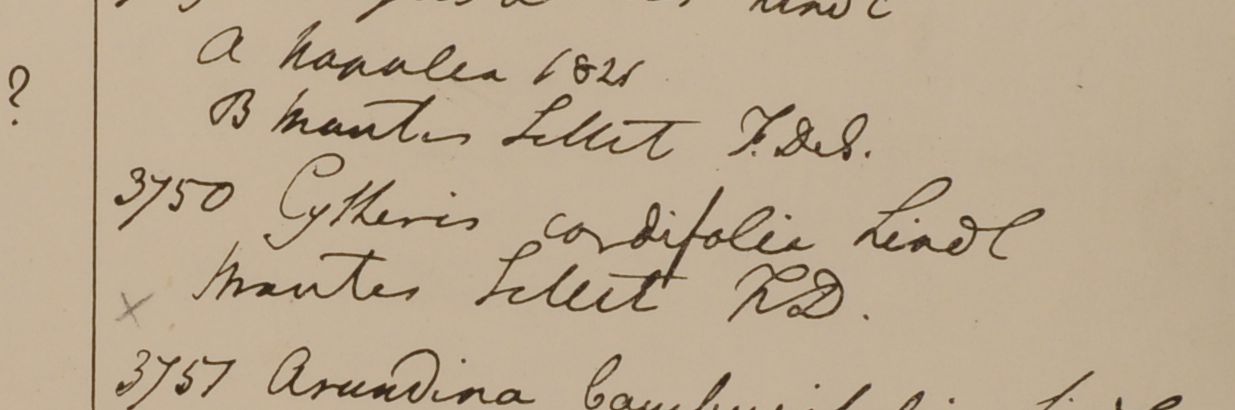 Lindl
A Napalea 1821
?
B Montes Sillet F. De S.
3750 Cytheris cordifolia Lindl
Montes Sillet F.D.
x
3751 Arundina bambusifolia Lindl